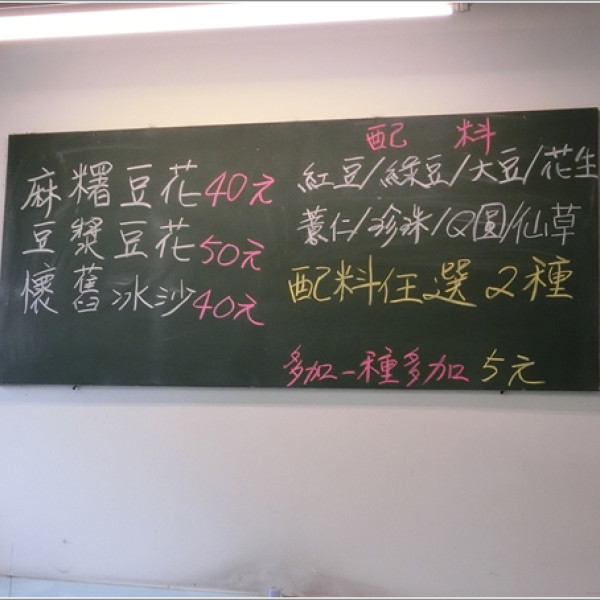 麻糬豆花40元
豆漿豆花50元
懷舊冰沙40元
配料
紅豆/綠豆/大豆/花生
薏仁/珍珠/Q圓/仙草
配料任選2種
多加一種多加5元